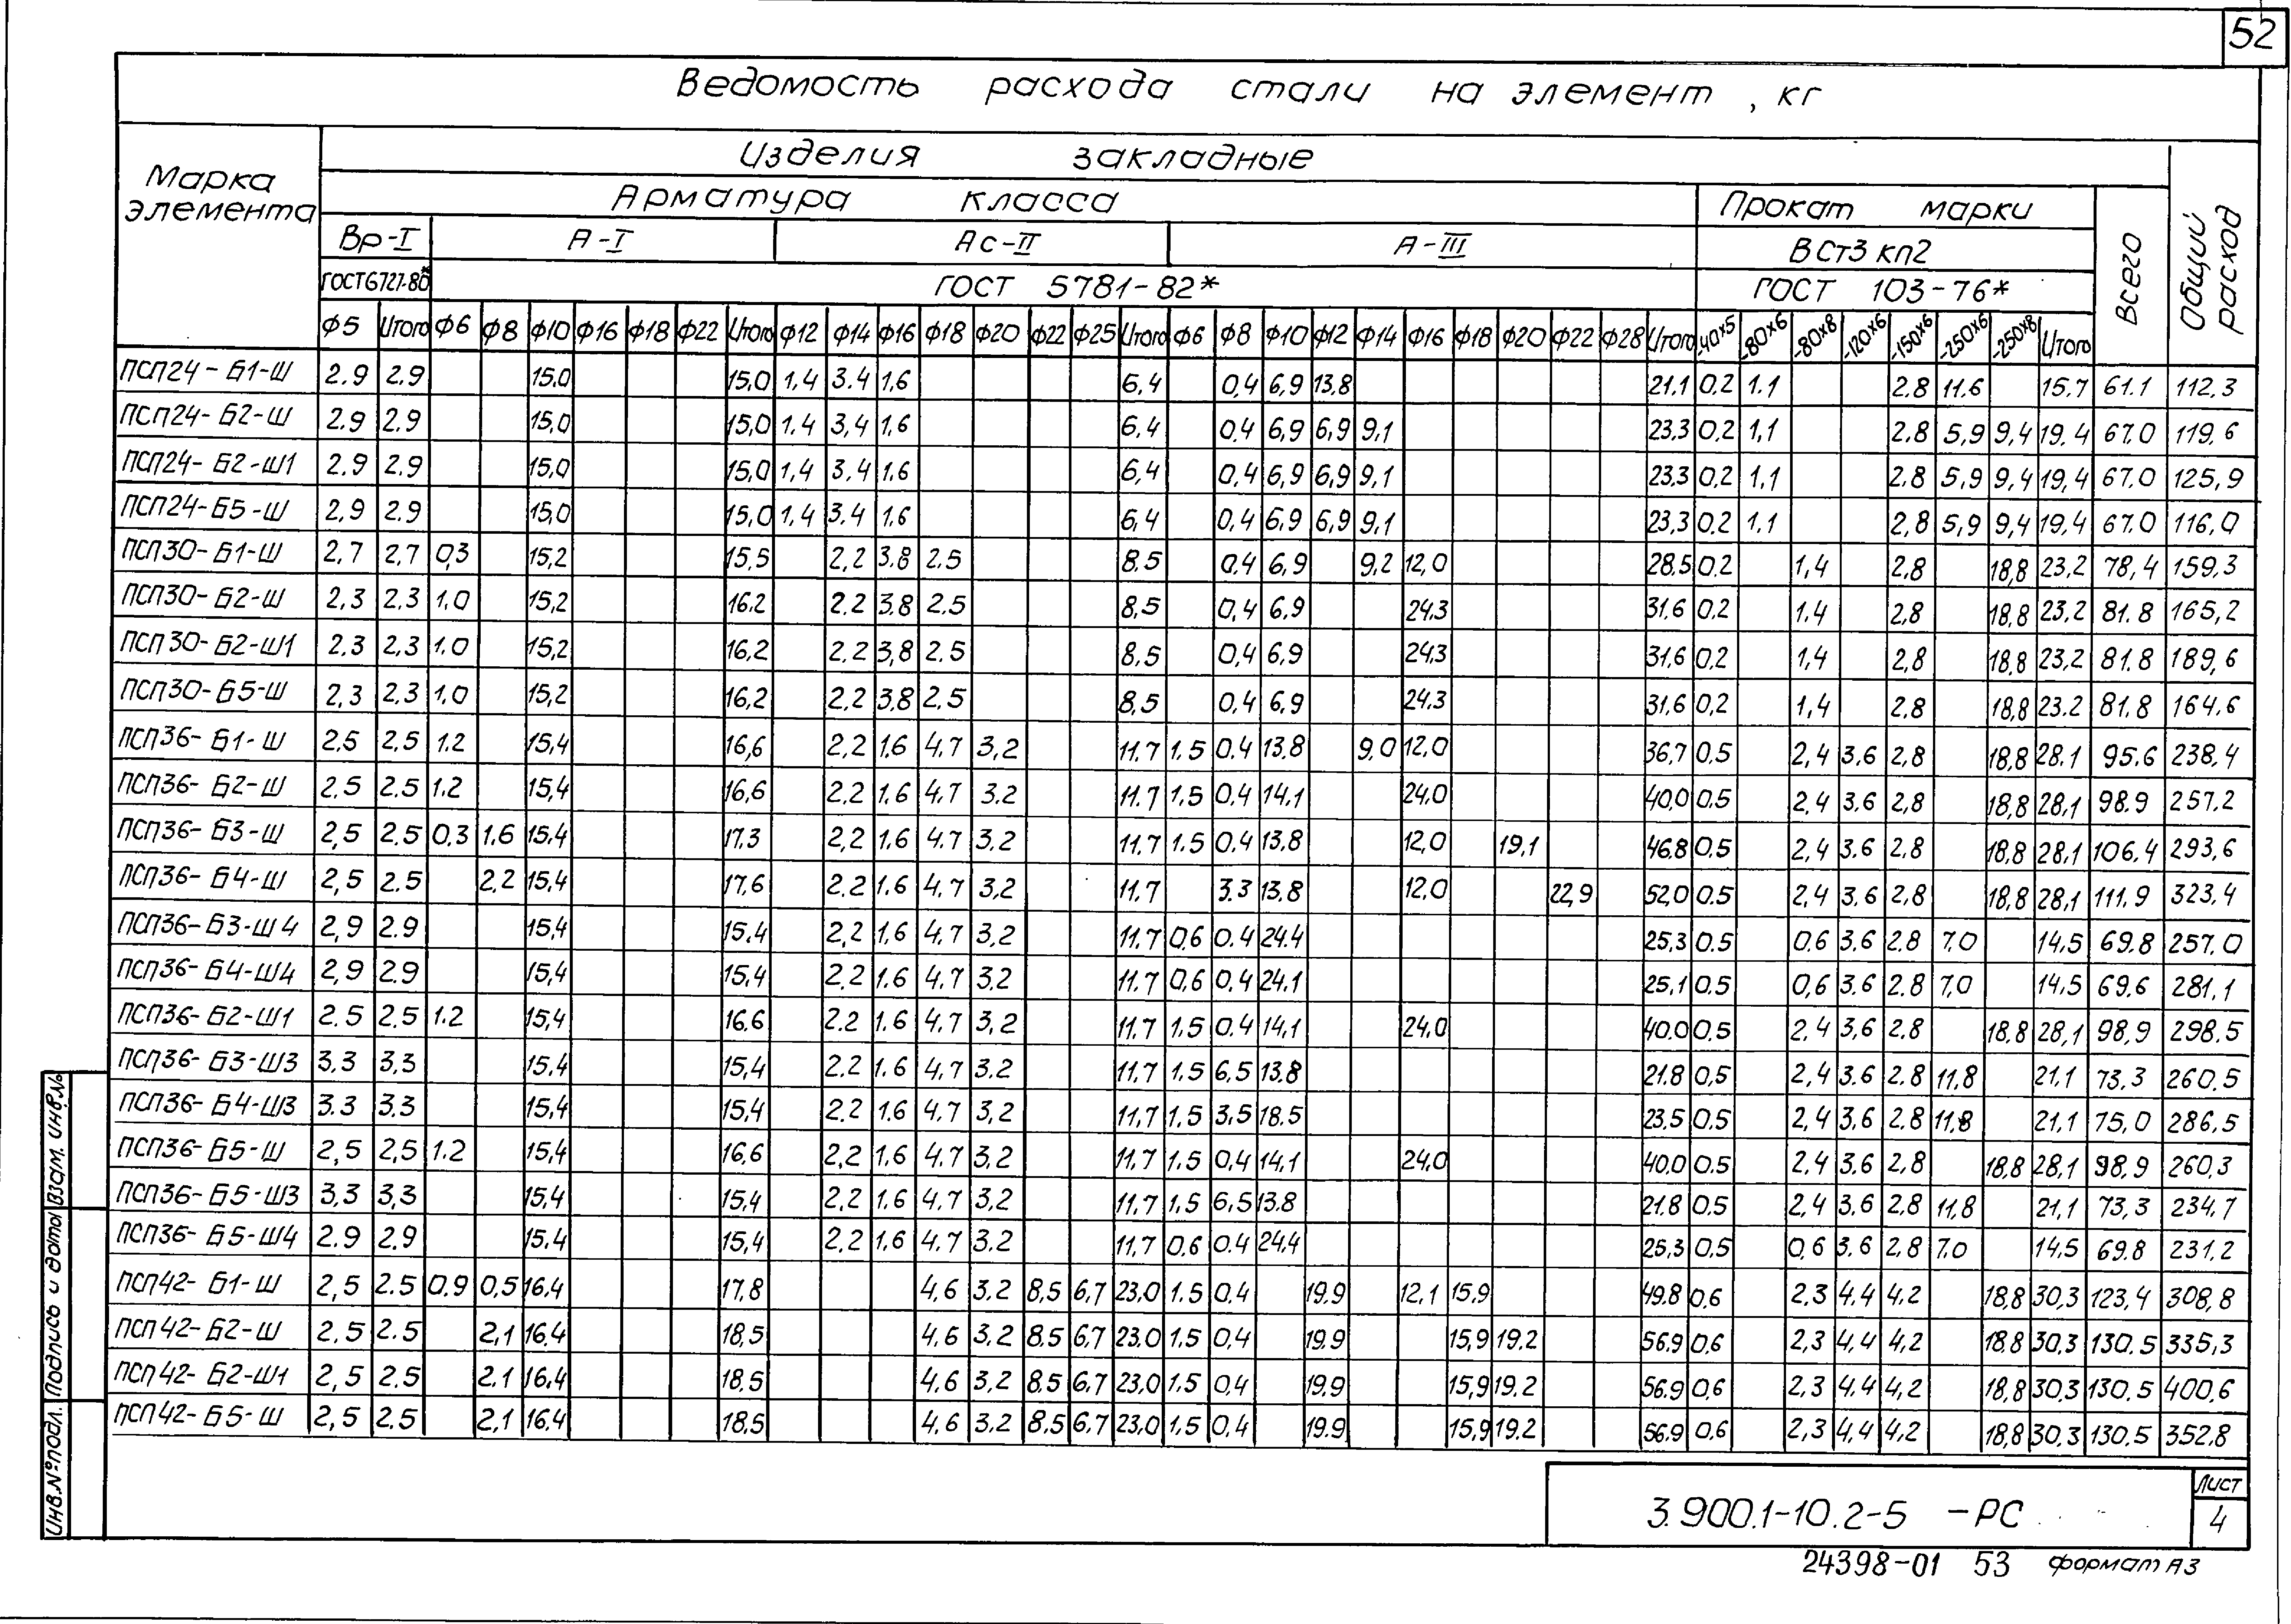 52
Ведомость расхода стали на элемент, кг
Марка элемента
Изделия закладные
Арматура класса
Прокат марки
Всего
Общий расход
Вр-I
А-I
Ас-II
А-III
ВСт3 кп2
ГОСТ 6727-80*
ГОСТ 5781-82*
ГОСТ 103-76*
Ф5 Итого Ф6 Ф8 Ф10 Ф16 Ф18 Ф22 Итого Ф12 Ф14 Ф16 Ф18 Ф20 Ф22 Ф25 Итого Ф6 Ф8 Ф10 Ф12 Ф14 Ф16 Ф18 Ф20 Ф22 Ф28 Итого -40x5 -80x6 -80x8 -120x6 -150x6 -250x6 -250x8 Итого
ПСП24-Б1-Ш 2.9 2.9 15,0 15,0 1,4 3.4 1,6 6,4 0,4 6,9 13,8 21,1 0,2 1.1 2.8 11.6 15,7 61.1 112,3
ПСП24-Б2-Ш 2.9 2.9 15,0 15,0 1.4 3,4 1,6 6,4 0.4 6,9 6,9 9,1 23,3 0,2 1,1 2,8 5,9 9,4 19,4 67.0 119,6
ПСП24-Б2-Ш1 2,9 2.9 15,0 15,0 1,4 3,4 1,6 6,4 0,4 6,9 6,9 9,1 23,3 0,2 1,1 2.8 5,9 9,4 19,4 67.0 125,9
ПСП24-Б5-Ш 2,9 2.9 15,0 15,0 1,4 3,4 1,6 6,4 0,4 6,9 6,9 9,1 23,3 0,2 1,1 2,8 5,9 9,4 19,4 67.0 116,0
ПСП30-Б1-Ш 2,7 2,7 0,3 15,2 15,5 2,2 3,8 2.5 8,5 0,4 6,9 9,2 12,0 28,5 0.2 1,4 2,8 18,8 23,2 78,4 159,3
ПСП30-Б2-Ш 2,3 2,3 1,0 15,2 16,2 2.2 3,8 2.5 8,5 0,4 6,9 24,3 31,6 0,2 1,4 2,8 18,8 23,2 81.8 165,2
ПСП30-Б2-Ш1 2,3 2,3 1,0 15,2 16,2 2,2 3,8 2.5 8,5 0,4 6,9 24,3 31,6 0,2 1,4 2,8 18,8 23,2 81.8 189,6
ПСП30-Б5-Ш 2,3 2,3 1,0 15,2 16,2 2,2 3,8 2,5 8,5 0,4 6,9 24,3 31,6 0,2 1,4 2,8 18,8 23.2 81.8 164.6
ПСП36-Б1-Ш 2,5 2,5 1.2 15,4 16,6 2,2 1,6 4,7 3,2 11.7 1.5 0.4 13,8 9,0 12,0 36,7 0.5 2,4 3,6 2,8 18,8 28.1 95.6 238,4
ПСП36-Б2-Ш 2,5 2.5 1.2 15,4 16,6 2,2 1.6 4,7 3.2 11.7 1,5 0.4 14,1 24,0 40,0 0.5 2,4 3,6 2,8 18,8 28,1 98.9 257.2
ПСП36-Б3-Ш 2,5 2.5 0,3 1,6 15,4 17,3 2,2 1,6 4,7 3,2 11,7 1.5 0.4 13,8 12,0 19,1 46,8 0.5 2,4 3,6 2,8 18,8 28,1 106,4 293,6
ПСП36-Б4-Ш 2,5 2.5 2,2 15,4 17,6 2.2 1.6 4,7 3,2 11,7 3.3 13.8 12,0 22,9 52,0 0.5 2,4 3,6 2,8 18,8 28,1 111,9 323,4
ПСП36-Б3-Ш4 2,9 2.9 15,4 15,4 2,2 1,6 4,7 3,2 11,7 0,6 0.4 24.4 25,3 0.5 0.6 3.6 2.8 7.0 14,5 69.8 257.0
ПСП36-Б4-Ш4 2,9 2.9 15,4 15,4 2,2 1.6 4,7 3.2 11.7 0,6 0.4 24,1 25,1 0.5 0,6 3.6 2.8 7,0 14,5 69.6 281,1
ПСП36-Б2-Ш1 2.5 2,5 1.2 15,4 16,6 2.2 1.6 4,7 3,2 11,7 1,5 0.4 14,1 24,0 40.0 0.5 2,4 3,6 2.8 18,8 28,1 98,9 298.5
ПСП36-Б3-Ш3 3,3 3,3 15.4 15,4 2.2 1.6 4,7 3.2 11,7 1.5 6,5 13.8 21.8 0,5 2,4 3.6 2.8 11,8 21,1 73,3 260.5
ПСП36-Б4-Ш3 3.3 3,3 15,4 15,4 2.2 1,6 4,7 3,2 11,7 1.5 3,5 18.5 23,5 0.5 2,4 3,6 2.8 11,8 21,1 75,0 286,5
ПСП36-Б5-Ш 2,5 2,5 1.2 15,4 16,6 2,2 1,6 4,7 3,2 11,7 1.5 0,4 14,1 24,0 40,0 0.5 2,4 3,6 2,8 18,8 28,1 98,9 260,3
ПСП36-Б5-Ш3 3,3 3,3 15,4 15,4 2,2 1,6 4,7 3,2 11,7 1.5 6,5 13.8 21.8 0,5 2,4 3,6 2,8 11,8 21,1 73,3 234,7
ПСП36-Б5-Ш4 2.9 2,9 15,4 15,4 2,2 1,6 4,7 3.2 11,7 0,6 0.4 24,4 25,3 0,5 0,6 3.6 2,8 7.0 14,5 69.8 231,2
ПСП42-Б1-Ш 2,5 2.5 0.9 0,5 16,4 17,8 4,6 3,2 8,5 6,7 23,0 1.5 0.4 19,9 12,1 15,9 49.8 0,6 2,3 4,4 4,2 18,8 30,3 123,4 308,8
ПСП42-Б2-Ш 2,5 2.5 2,1 16,4 18,5 4,6 3,2 8,5 6,7 23,0 1.5 0,4 19,9 15,9 19,2 56,9 0,6 2,3 4,4 4,2 18,8 30,3 130.5 335,3
ПСП42-Б2-Ш1 2,5 2.5 2.1 16,4 18,5 4,6 3,2 8,5 6,7 23,0 1.5 0,4 19,9 15,9 19,2 56.9 0,6 2,3 4,4 4,2 18,8 30,3 130,5 400,6
ПСП42-Б5-Ш 2,5 2.5 2,1 16,4 18,5 4,6 3,2 8,5 6,7 23,0 1,5 0,4 19,9 15,9 19,2 56,9 0,6 2,3 4,4 4,2 18,8 30,3 130,5 352,8
Инв.№подл. Подпись и дата Взам. инв.№
3.900.1-10.2-5 -РС
Лист
4
24398-01 53 формат А3